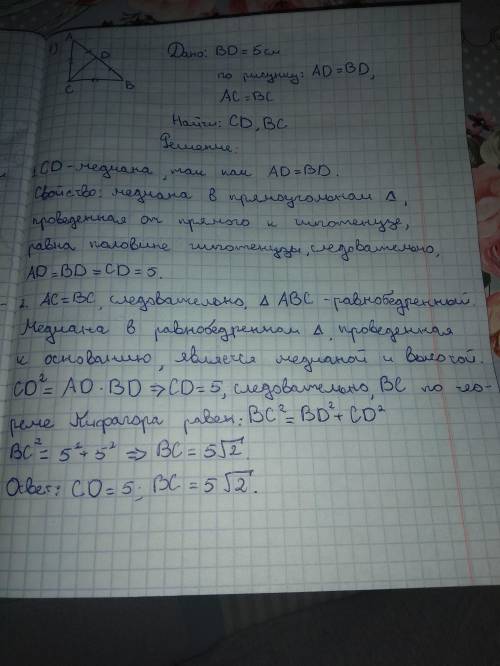 1) A
D
C B
Дано: BD = 5 см
по рисунку: AD = BD,
AC = BC
Найти: CD, BC
Решение:
1. CD - медиана, так как AD = BD.
Свойство: медиана в прямоугольном Δ,
проведенная от прямого к гипотенузе,
равна половине гипотенузы, следовательно,
AD = BD = CD = 5.
2. AC = BC, следовательно, Δ ABC - равнобедренный.
Медиана в равнобедренном Δ, проведенная
к основанию, является медианой и высотой.
CD² = AD · BD ⇒ CD = 5, следовательно, BC по тео-
реме Пифагора равен: BC² = BD² + CD²
BC² = 5² + 5² ⇒ BC = 5√2.
Ответ: CD = 5; BC = 5√2.